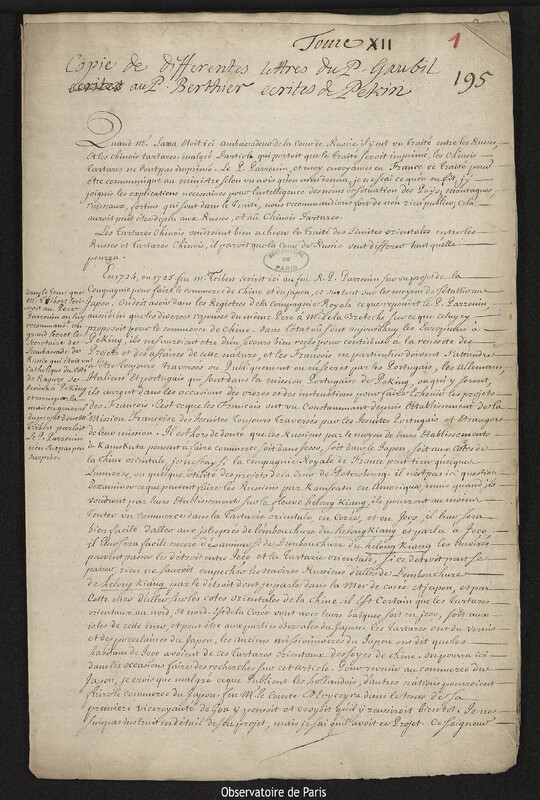 Tome XII
1
Copie de differentes lettres du P. Gaubil
ecrites au P. Berthier ecrites de Pekin
195
Quand Mr. Sava étoit ici ambassadeur de la cour de Russie il y eut un Traité entre les Russes
et les chinois tartares. malgré l'article qui portoit que le Traité seroit imprimé, les Chinois
Tartares ne l'ont pas imprimé. Le P. Parrenin, et moy envoyames en France ce Traité pour
être communiqué au ministre selon un avis qu'on nous donna,
joignis les explications necessaires pour l'intelligence des noms et situation des Pays, montagnes,
rivieres, fortins qui sont dans le Traité, nous recommandions fort de n'en rien publier, cela
auroit puit être deplu aux Russes, et aux Chinois Tartares.
Les Tartares Chinois voudroient bien achever le Traité des limites orientales entre les
Russes et Tartares Chinois, il paroit que la Cour de Russie veut differer tant qu'elle
pourra.
OBSERVATOIRE DE PARIS
En 1724, ou 1725 feu Mr. Tribert ecrivit ici au feu R. P. Parrenin sur un projet de la
Compagnie pour faire le commerce de Chine et du japon, et surtout sur les moyens de s'etablir au
Japon. On doit avoir dans les Registres de la Compagnie Royale ce que repondit le P. Parrenin,
aussi bien que les diverses reponses du même Pere à Mr. de la Bretesche sur ce que celuy cy
proposoit pour le commerce de Chine. dans l'état où sont aujourd'huy les Européens à
Peking, ils ne sauroient être d'un secours bien reel pour contribuer à la reussite des
Projets et des affaires de cette nature, et les François en particulier doivent s'attendre
à être toujours traversés ou publiquement ou en secret par les Portugais, les Allemans,
Italiens et portugais qui sont dans la mission Portugaise de Peking, ou qui y seront,
ils auront dans les occasions des ordres et des instructions pour faire echouer les projets
des François. c'est ce que les François ont vu constamment depuis l'établissement de la
Mission Françoise des Jesuites toujours traversés par les Jesuites Portugais et étrangers
de leur mission. Il est hors de doute que les Russiens par le moyen de leurs Etablissements
de Kamskatka pensent à faire commerce, soit dans Jesso, soit dans le Japon, soit aux côtes de
la Chine orientale, je ne sçay si la compagnie Royale de France peut tirer quelque
Lumieres, ou quelque utilité des projets de la Cour de Petersbourg. il n'est pas ici question
d'examiner ce que peuvent faire les Russiens par Kamscata en Amerique, mais quand ils
voudront par leurs Etablissements sur le fleuve helong Kiang, ils pourront au moins
tenter un commerce dans la Tartarie orientale, en Corée, et en Jeço, il leur sera
bien facile d'aller aux isles près de l'embouchure du helong Kiang et par là à Jeço
il leur sera facile encore d'examiner si de l'embouchure du helong Kiang les navires
peuvent passer le détroit entre Jeço et la Tartarie orientale, si ce détroit peut se
passer, rien ne sauroit empecher les navires Russiens d'aller de l'embouchure
de helong Kiang par le détroit dont je parle dans la Mer de corée et Japon, et par
cette mer d'aller sur les côtes orientales de la chine. il est certain que les tartares
orientaux au nord, et nord-est de la Corée vont avec leurs barques soit au jeço, soit aux
isles de cette mer, et peut être aux parties boreales du Japon. Ces tartares ont du vernis
et des porcelaines du Japon, les anciens missionnaires du Japon ont dit que les
habitans de Jeço avoient de ces tartares orientaux des soyes de chine. on pourra ici
dans les occasions faire des recherches sur cet article. Pour revenir au commerce du
Japon, je crois que malgré ce que Publient les hollandois, d'autres nations pourroient
faire le commerce du Japon. feu Mr. le Comte d'Ericeyra dans le tems de sa
premiere viceroyauté de Goa y pensoit et croyoit qu'il y reussiroit bientot. Je ne
suis pas instruit en détail de son projet, mais je sai qu'il avoit ce Projet. Ce Seigneur
dans le tems que
Mr. Tribert ecri
voit au Pere
Parrenin on luy
recommandoit un
grand secret. le
Secretaire de
l'ambassade de
Russie qui étoit un
Catholique du côté
de Raguse se
trouva à Peking
et
main
du projet dont Mr.
Tribert parloit
le P. Parrenin
n'en fut pas peu
surpris.
Observatoire de Paris